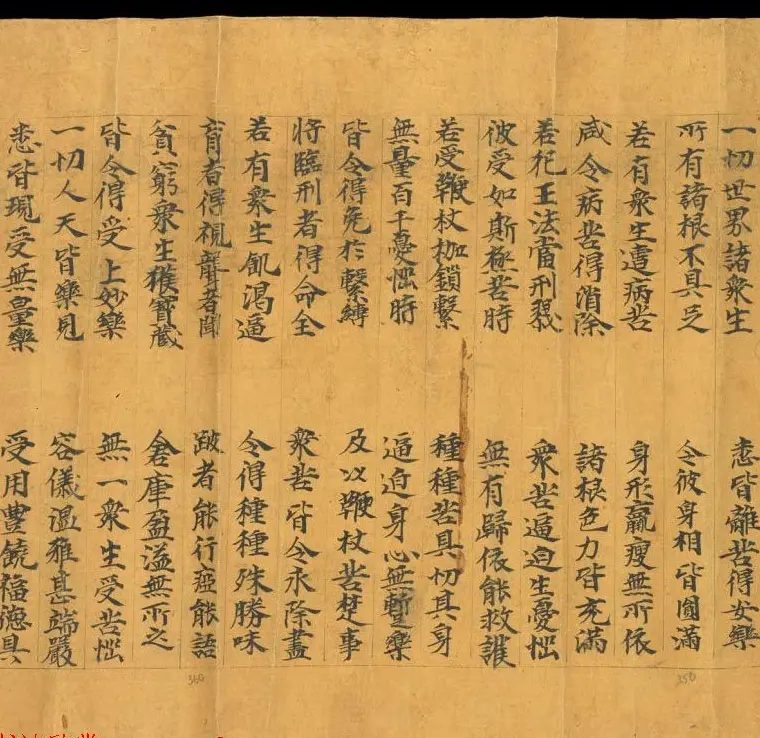 一切世界諸衆生 悉皆離苦得安樂
所有諸根不具足 令彼身相皆圓滿
若有衆生遭病苦 身形羸瘦無所依
咸令病苦得消除 諸根色力皆充滿
若犯王法當刑戮 衆苦逼迫生憂惱
彼受如斯極苦時 無有歸依能救護
若受鞭杖枷鎖繫 種種苦具切其身
無量百千憂惱時 逼迫身心無暫樂
皆令得免於繫縛 及以鞭杖苦楚事
將臨刑者得命全 衆苦皆令永除盡
若有衆生飢渴逼 令得種種殊勝味
盲者得視聾者聞 跛者能行瘂能語
貧窮衆生獲寶藏 倉庫盈溢無所乏
皆令得受上妙樂 無一衆生受苦惱
一切人天皆樂見 容儀溫雅甚端嚴
悉皆現受無量樂 受用豐饒福德具
350
360